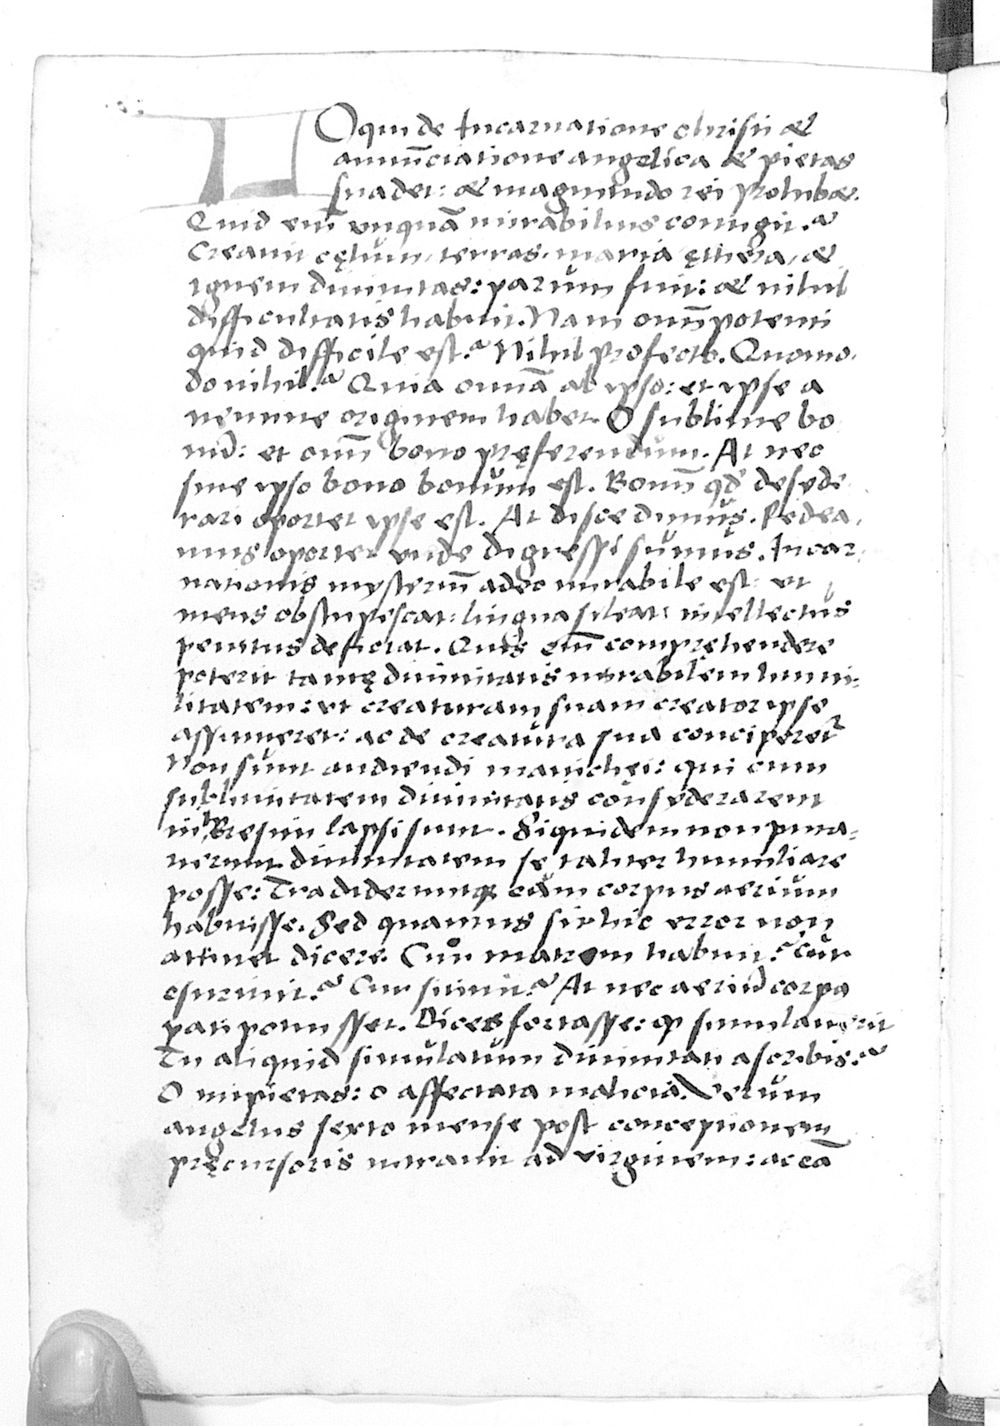 LOqui de Incarnatione christi &
annūciatione angelica & pietas
suadet: & magnitudo rei prohib&.
Quid em̄ vnquā mirabilius contigit?
Creauit cęlum, terras, maria ęthera, &
ignem diuinitas: parum fuit: & nihil
difficultatis habuit. Nam omn̄potenti
quid difficile est? Nihil profecto. Quomo-
do nihil? Quia omnā ab ipso: et ipse a
nemine originem habet. O sublime bo
nū: et omn̄ bono pręferendum. At nec
sine ipso bono bonum est. Bonū qd' desyde
rari oportet ipse est. At discedimus. Redea,
mus oportet vnde digressi sumus. Incar-
nationis mysteriū adeo mirabile est: vt
mens obstupescat: lingua sileat: intellectus
penitus deficiat. Quis em̄ compręhendere
poterit tamę diuinitatis mirabilem humi-
litatem: vt creaturam suam creator ipse
assumeret: ac de creatura sua conciperet'
Non sunt audiendi manichei: qui cum
sublimitatem diuinitatis consyderarent
in hęresim lapsi sunt. Siquidem non puta-
uerunt diuinitatem se taliter humiliare
posse: Tradideruntq; eam corpus aerium
habuisse. Sed quamuis sit hic error non
attinet dicere. Cur matrem habuit? Cur
esuriuit? Cur sitiuit? At nec aeriū corpꝰ
pati potuisset. Dices fortasse: ꝙ simulauerit
Tu aliquid simulatum diuinitati ascribis?
O impietas: o affectata malicia. Verum
angelus sexto mense post conceptionem
pręcursoris intrauit ad virginem: ac eā